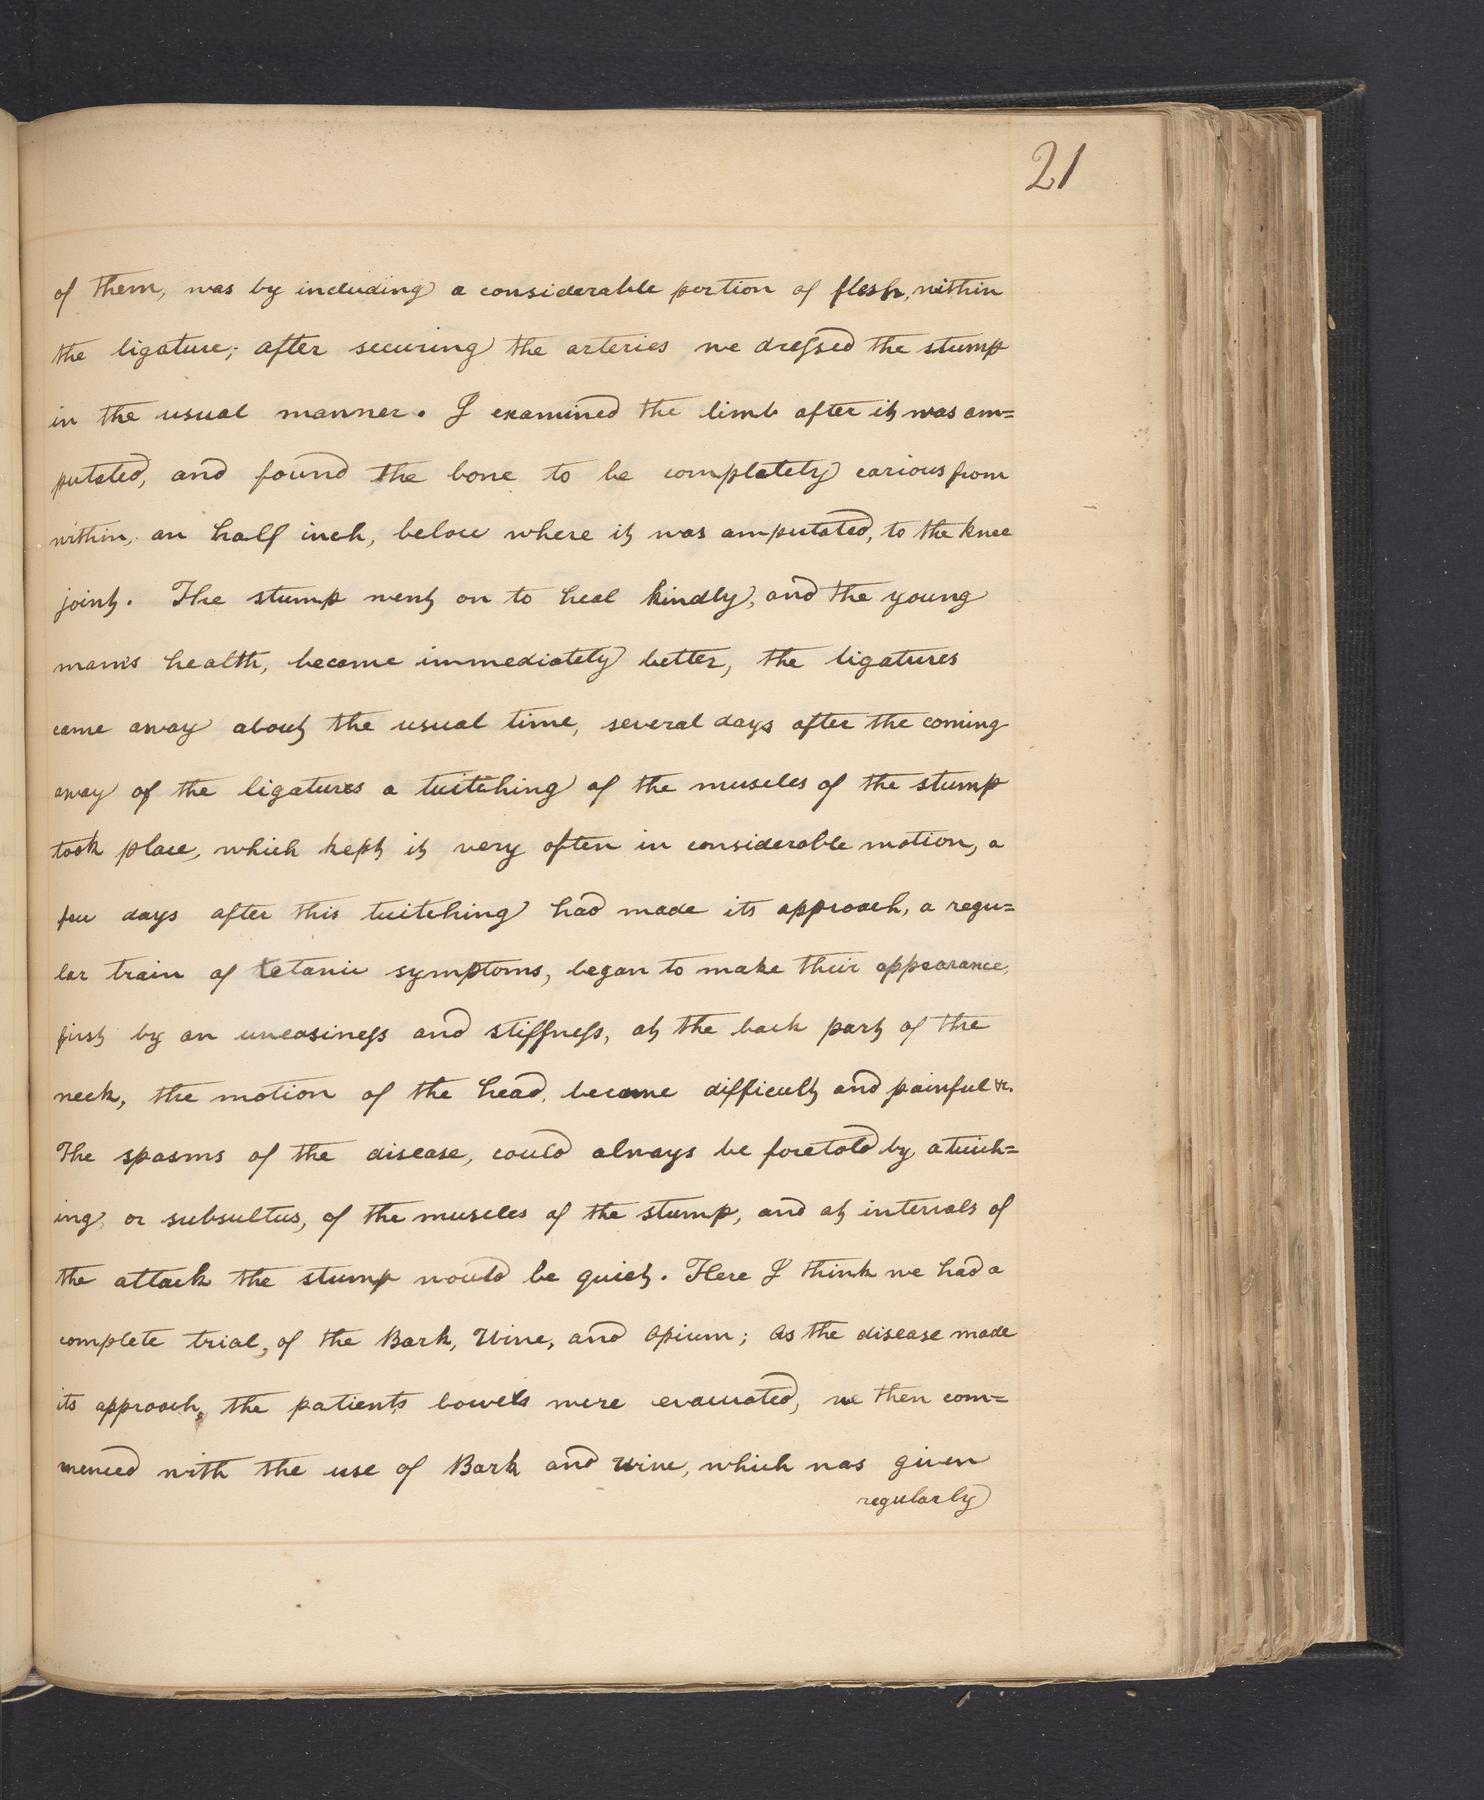 21
of them, was by including a considerable portion of flesh, within
the ligature; after securing the arteries we dressed the stump
in the usual manner. I examined the limb after it was am=
putated, and found the bone to be completely carious from
within, an half inch, below where it was amputated, to the knee
joint. The stump went on to heal kindly, and the young
man's health, became immediately better, the ligatures
came away about the usual time, several days after the coming
away of the ligatures a twitching of the muscles of the stump
took place, which kept it very often in considerable motion, a
few days after this twitching had made its approach, a regu=
lar train of tetanic symptoms, began to make their appearance,
first by an uneasiness and stiffness, at the back part of the
neck, the motion of the head, became difficult and painful &c.
The spasms of the disease, could always be foretold by a twich=
ing, or subsultus, of the muscles of the stump, and at intervals of
the attack the stump would be quiet. Here I think we had a
complete trial, of the Bark, Wine, and Opium; as the disease made
its approach, the patients bowels were evacuated, we then com=
menced with the use of Bark and Wine, which was given
regularly